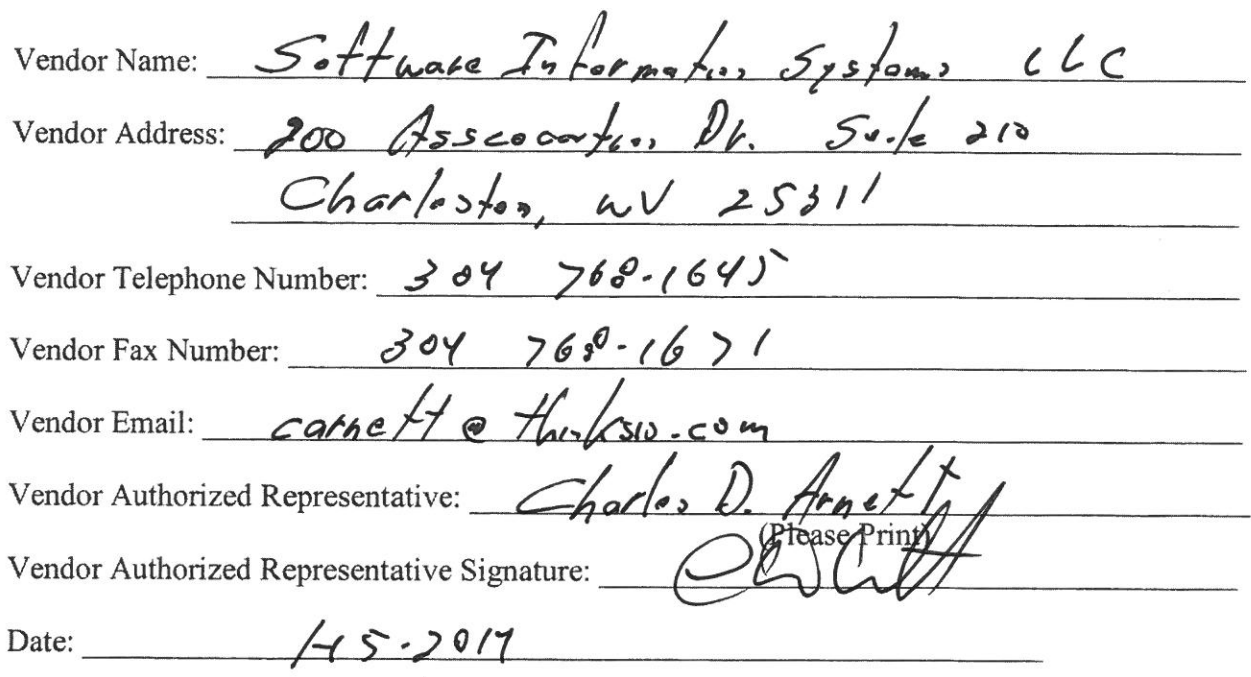 Vendor Name: Software Information Systems LLC
Vendor Address: 200 Asscocation Dr. Suite 210
Charleston, WV 25311
Vendor Telephone Number: 304 768-1645
Vendor Fax Number: 304 768-1671
Vendor Email: carnett@thinksis.com
Vendor Authorized Representative: Charles D. Arnett
(Please Print)
Vendor Authorized Representative Signature:
Date: 1-15-2017